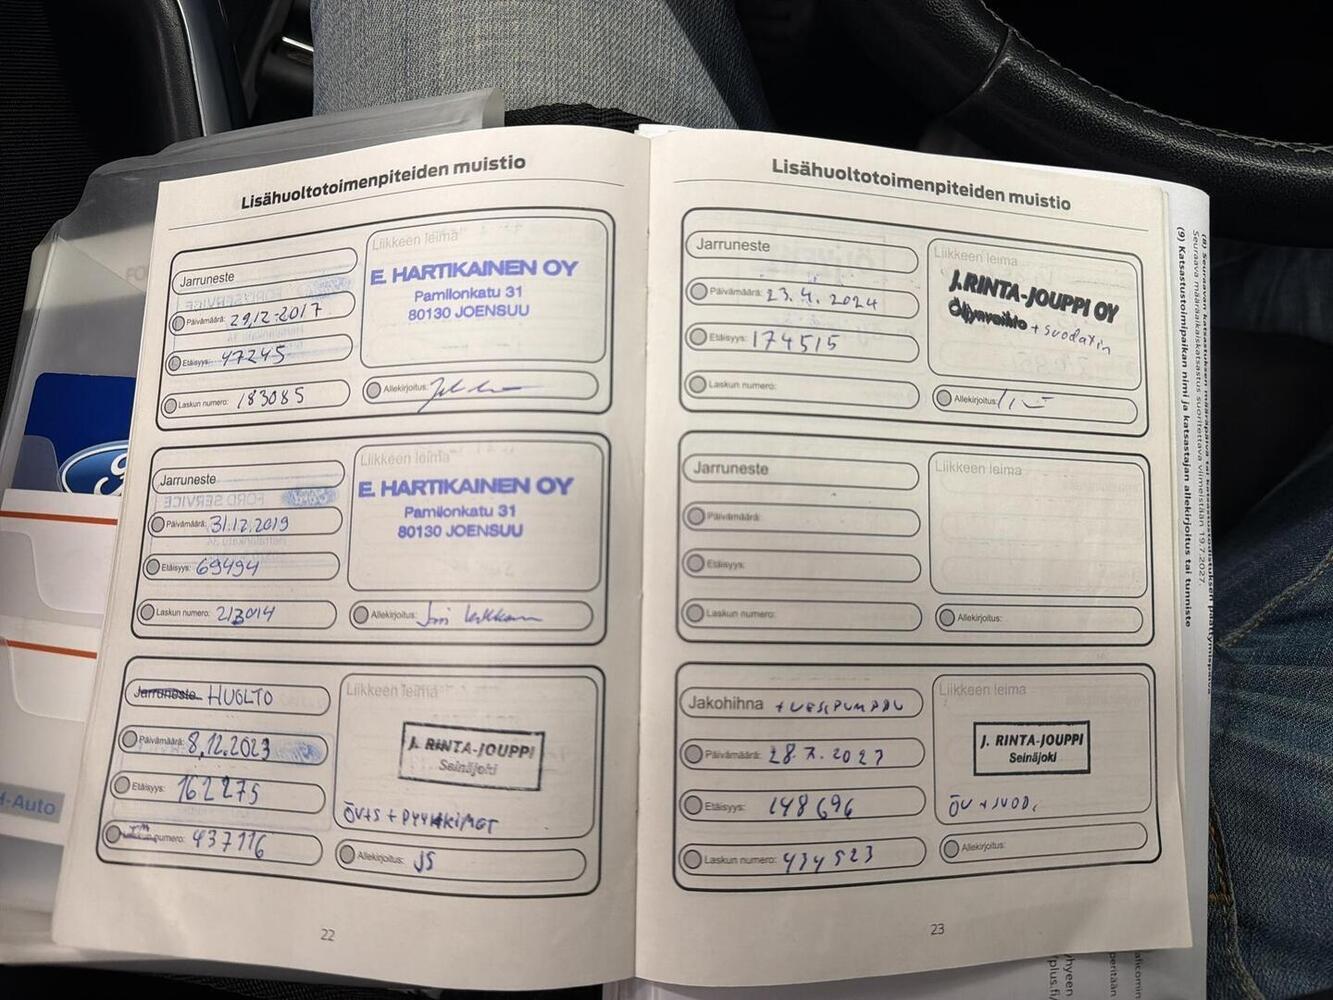 Lisähuoltotoimenpiteiden muistio
Jarruneste
Päivämäärä: 29.12.2017
Etäisyys: 47245
Laskun numero: 183085
Liikkeen leima
E. HARTIKAINEN OY
Pamilonkatu 31
80130 JOENSUU
Allekirjoitus:
Jarruneste
Päivämäärä: 31.12.2019
Etäisyys: 69494
Laskun numero: 213014
Liikkeen leima
E. HARTIKAINEN OY
Pamilonkatu 31
80130 JOENSUU
Allekirjoitus:
Jarruneste HUOLTO
Päivämäärä: 8.12.2023
Etäisyys: 162275
numero: 437116
Liikkeen leima
J. RINTA-JOUPPI
Seinäjoki
ÖV+S +
Allekirjoitus: JS
22
Lisähuoltotoimenpiteiden muistio
Jarruneste
Päivämäärä: 23.4.2024
Etäisyys: 174515
Laskun numero:
Liikkeen leima
J.RINTA-JOUPPI OY
Öljynvaihto + suodatin
Allekirjoitus:
Jarruneste
Päivämäärä:
Etäisyys:
Laskun numero:
Liikkeen leima
Allekirjoitus:
Jakohihna + VESIPUMPPU
Päivämäärä:
Etäisyys: 148696
Laskun numero: 434523
Liikkeen leima
J. RINTA-JOUPPI
Seinäjoki
ÖV + SUOD.
Allekirjoitus:
23
(8) Seuraavan katsastuksen määräpäivä tai katsastustodistuksen päättymispäivä
Seuraava määräaikaiskatsastus suoritettava viimeistään 19.7.2027.
(9) Katsastustoimipaikan nimi ja katsastajan allekirjoitus tai tunniste
-Auto